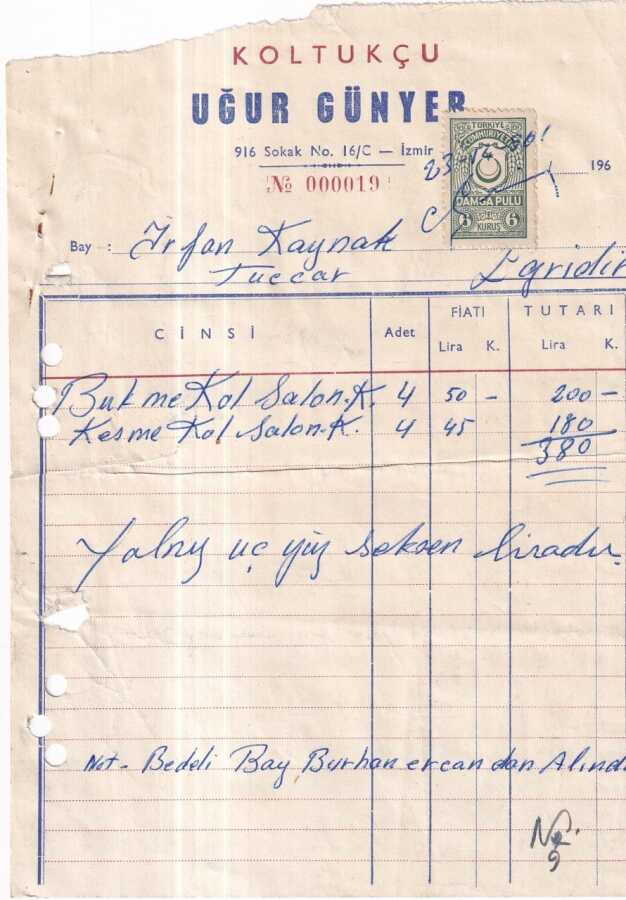 KOLTUKÇU
UĞUR GÜNYER
916 Sokak No. 16/C — İzmir
№ 000019
TÜRKİYE
CUMHURİYETİ
DAMGA PULU
6 KURUŞ 6
196
Bay : İrfan Kaynak
Tuccar Egridir
CİNSİ Adet FİATI TUTARI
Lira K. Lira K.
Bukme Kol Salon.K. 4 50 - 200 -
Kesme Kol Salon.K. 4 45 180
380
Yalnız üç yüz seksen liradır.
Not - Bedeli Bay Burhan ercan dan Alındı